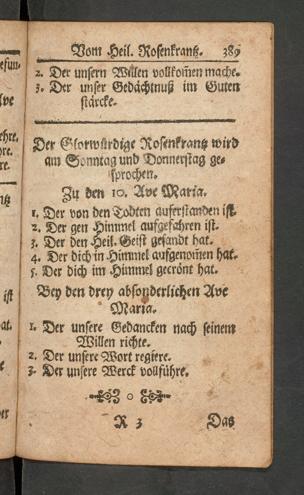 Vom Heil. Rosenkrantz. 389
2. Der unsern Willen vollkom̃en mache.
3. Der unser Gedächtnuß im Guten
stärcke.
Der Glorwürdige Rosenkrantz wird
am Sonntag und Donnerstag ge-
sprochen.
Zu den 10. Ave Maria.
1. Der von den Todten auferstanden ist.
2. Der gen Himmel aufgefahren ist.
3. Der den Heil. Geist gesandt hat.
4. Der dich in Himmel aufgenom̃en hat.
5. Der dich im Himmel gecrönt hat.
Bey den drey absonderlichen Ave
Maria.
1. Der unsere Gedancken nach seinem
Willen richte.
2. Der unsere Wort regiere.
3. Der unsere Werck vollführe.
R 3 Das